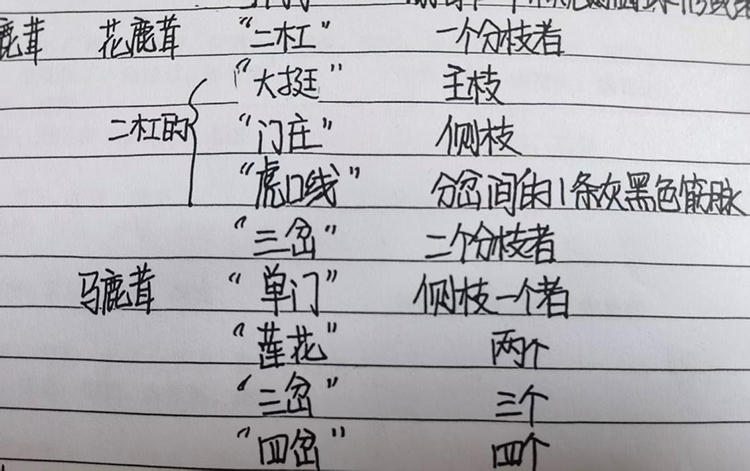 鹿茸 花鹿茸 “二杠” 一个分枝者
“大挺” 主枝
二杠的 “门庄” 侧枝
“虎口线” 分岔间的1条灰黑色筋脉
“三岔” 二个分枝者
马鹿茸 “单门” 侧枝一个者
“莲花” 两个
“三岔” 三个
“四岔” 四个